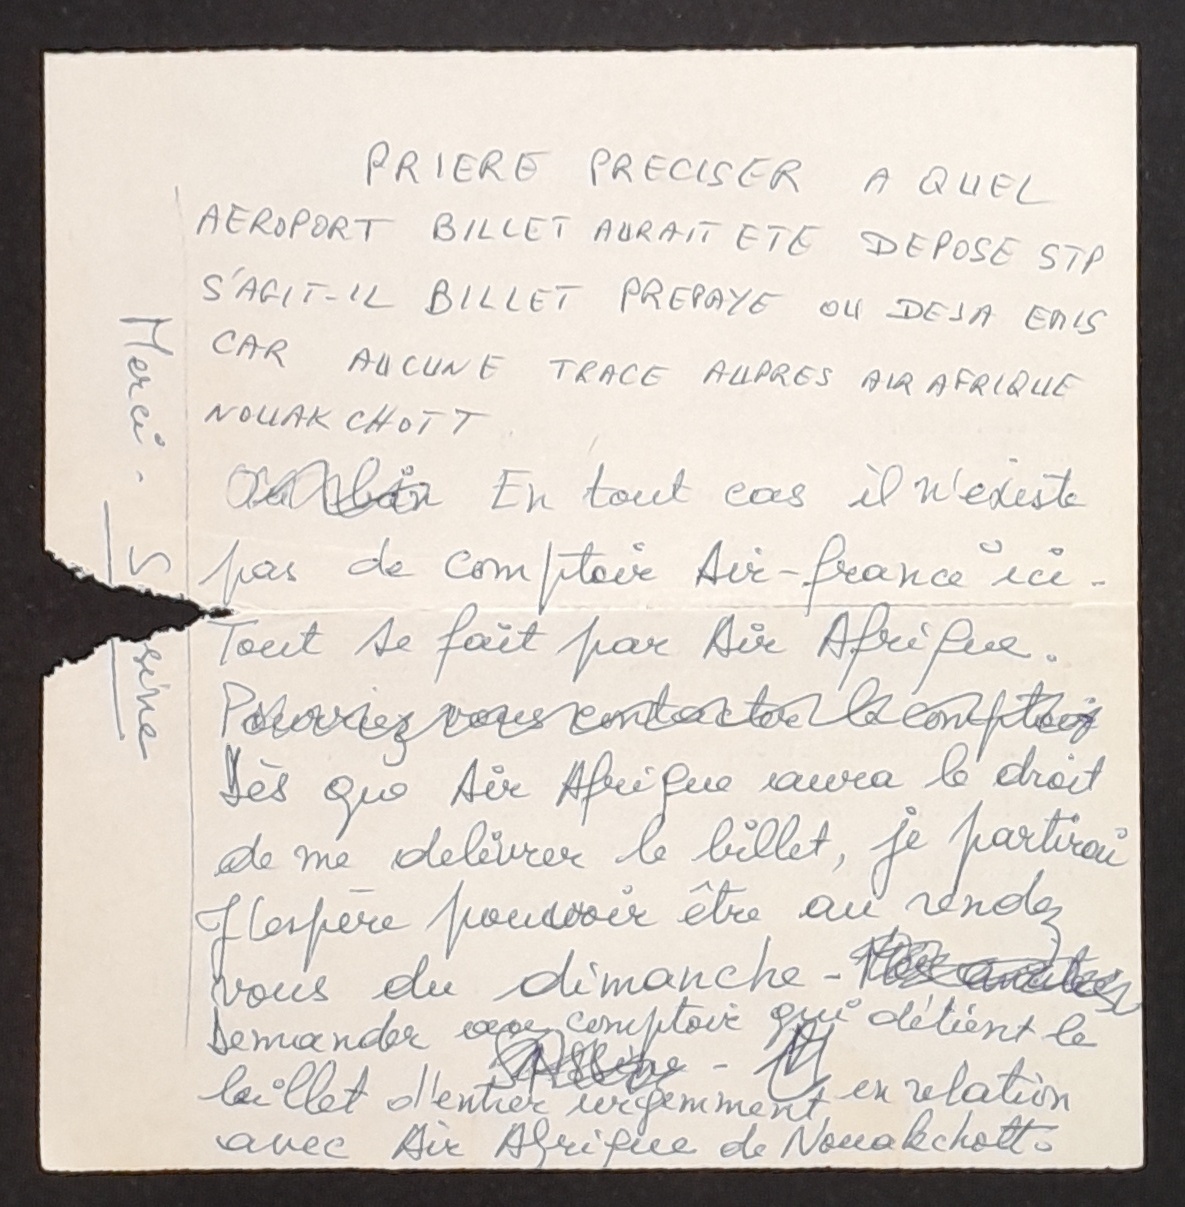 PRIERE PRECISER A QUEL
AEROPORT BILLET AURAIT ETE DEPOSE STP
S'AGIT-IL BILLET PREPAYE OU DEJA EMIS
CAR AUCUNE TRACE AUPRES AIR AFRIQUE
NOUAKCHOTT
Ou bien En tout cas il n'existe
pas de comptoir Air-france ici -
Tout se fait par Air Afrique.
Pourriez vous contacter le comptoir
Dès que Air Afrique aura le droit
de me delivrer le billet, je partirai
J'espère pouvoir être au rendez
vous du dimanche -
Demander au comptoir qui détient le
Sassine -
billet d'entrer urgemment en relation
avec Air Afrique de Nouakchott.
Merci - S sine